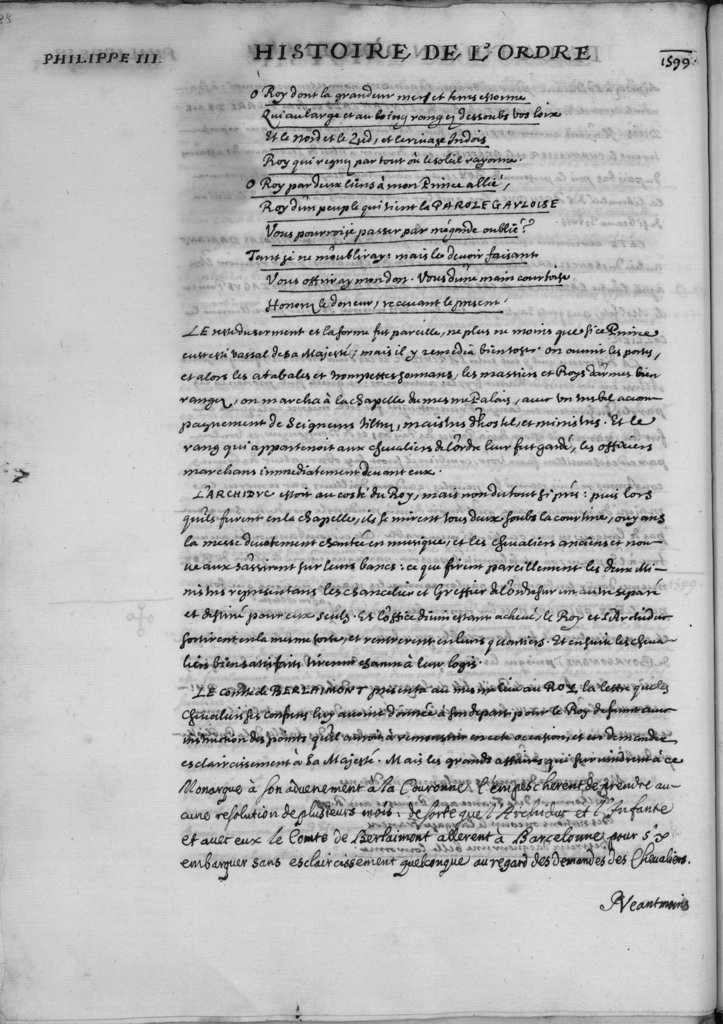 PHILIPPE III.
HISTOIRE DE L'ORDRE
1599.
O Roy dont la grandeur mers et terres estonne
Qui au large et au loing rangez dessoubs vos loix
Et le Nord et le Zud, et le rivage Indois
Roy qui regnez par tout où le soleil rayonne.
O Roy par deux liens à mon Prince allié,
Roy d'un peuple qui tient la PAROLE GAULOISE
Vous pourroisje passer par mégarde oublié?
Tant je ne m'oubliray: mais le devoir faisant
Vous offriray mon don. Vous d'une main courtoise
Honorez le doneur, recevant le present.
LE reste du serment et la forme fut pareille, ne plus ne moins que si ce Prince
eust esté vassal de sa Majesté; mais il y remedia bien tost. On ouvrit les portes,
et alors les atabales et trompettes sonnans, les massiers et Roys d'armes bien
rangez, on marcha à la chapelle du mesme Palais, avec un tresbel accom
pagnement de Seigneurs tiltrez, maistres d'hostel, et ministres. Et le
rang qui appartenoit aux chevaliers de l'ordre leur fut gardé, les officiers
marchans immediatement devant eux.
L'ARCHIDUC estoit au costé du Roy, mais non du tout si prés: puis lors
qu'ils furent en la chapelle, ils se mirent tous deux soubs la courtine, oüyans
la messe devotement chantée en musique, et les chevaliers anciens et nou
veaux s'assirent sur leurs bancs: ce que firent pareillement les deux Mi-
nistres representans les chancelier et Greffier de l'ordre sur un autre separé
et destiné pour eux seuls. Et l'office divin estant achevé, le Roy et l'Archiduc
sortirent en la mesme sorte, et rentrerent en leurs quartiers. Et ensuite les cheva-
liers bien satisfaits tirerent chacun à leur logis.
LE comte de BERLAIMONT presenta au mesme lieu au ROY la lettre que les
chevaliers ses confreres luy avoient donnée à son depart pour le Roy defunt avec
instruction des points qu'il auroit à remonstrer en cete occasion, et en demander
esclaircissement à Sa Majesté. Mais les grands affaires qui survindrent à ce
Monarque à son advenement à la Couronne l'empescherent de prendre au-
cune resolution de plusieurs mois: de sorte que l'Archiduc et l'Infante
et avec eux le Comte de Berlaimont allerent à Barcelonne pour s'y
embarquer sans esclaircissement quelconque au regard des demandes des Chevaliers.
Neantmoins